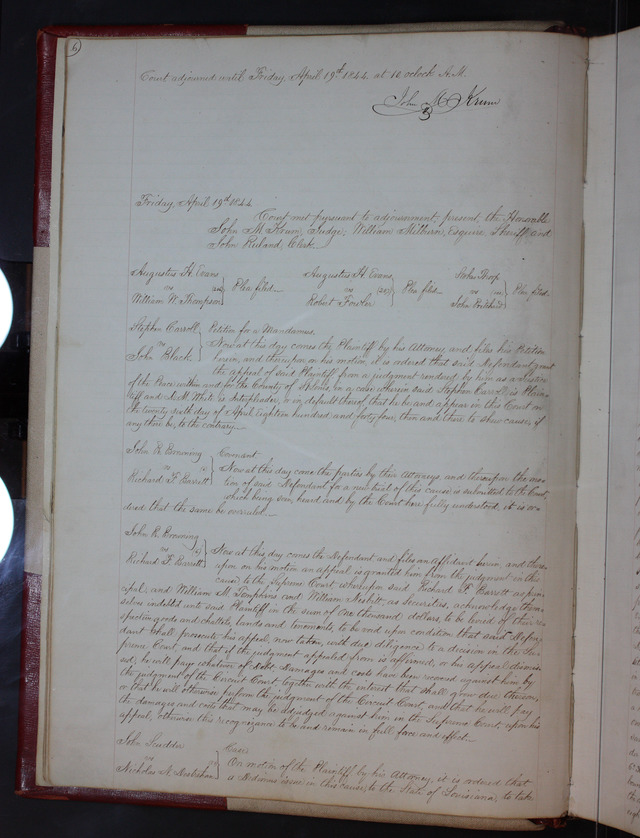 6
Court adjourned until Friday, April 19th 1844 at 10 oclock A.M.
John M. Krum
Friday, April 19th 1844
Court met pursuant to adjournment, present, the Honorable
John M. Krum, Judge; William Milburn, Esquire, Sheriff, and
John Ruland, Clerk
Augustus H. Evans
vs
William W. Thompson
Plea filed
Augustus H. Evans
vs
Robert Fowler
Plea filed
John
vs
John
Plea filed
Stephen Carroll
vs
John Black
Petition for a Mandamus
Now at this day comes the Plaintiff by his Attorney and files his Petition
herein, and thereupon on his motion, it is ordered that said Defendant grant
the appeal of said Plaintiff from a judgment rendered by him as a Justice
of the Peace within and for the County of St Louis, in a case wherein said Stephen Carroll is Plain-
tiff and White is Interpleader, or in default thereof, that he be and appear in this Court on
the twenty sixth day of April Eighteen hundred and forty four, then and there to shew cause, if
any there be, to the contrary
John R. Browning
vs
Richard F. Barrett
Covenant
Now at this day come the parties by their Attorneys, and thereupon the mo-
tion of said Defendant for a new trial of this cause, is submitted to the Court,
which being seen, heard and by the Court here fully understood, it is or-
dered that the same be overruled
John R. Browning
vs
Richard F. Barrett
Now at this day comes the Defendant and files an Affidavit herein and there-
upon on his motion an appeal is granted him from the judgment in this
cause, to the Supreme Court, whereupon said Richard F. Barrett as prin-
cipal, and William M. Tompkins and William Nisbet, as Securities, acknowledge them-
selves indebted unto said Plaintiff in the sum of One thousand dollars, to be levied of their re-
spective goods and chattels, lands and tenements, to be void upon condition that said Defen-
dant shall prosecute his appeal, now taken, with due diligence to a decision in the Su-
preme Court, and that if the judgment appealed from is affirmed, or his appeal dismis-
sed, he will pay whatever of debt, damages and costs have been recovered against him by
the judgment of the Circuit Court, together with the interest that shall grow due thereon,
or that he will otherwise perform the judgment of the Circuit Court, and that he will pay
the damages and costs that may be adjudged against him in the Supreme Court, upon his
appeal; otherwise this recognizance to be and remain in full force and effect
John Scudder
vs
Nicholas N.
Case
On motion of the Plaintiff by his Attorney, it is ordered that
a Dedimus issue in this cause, to the State of Louisiana, to take